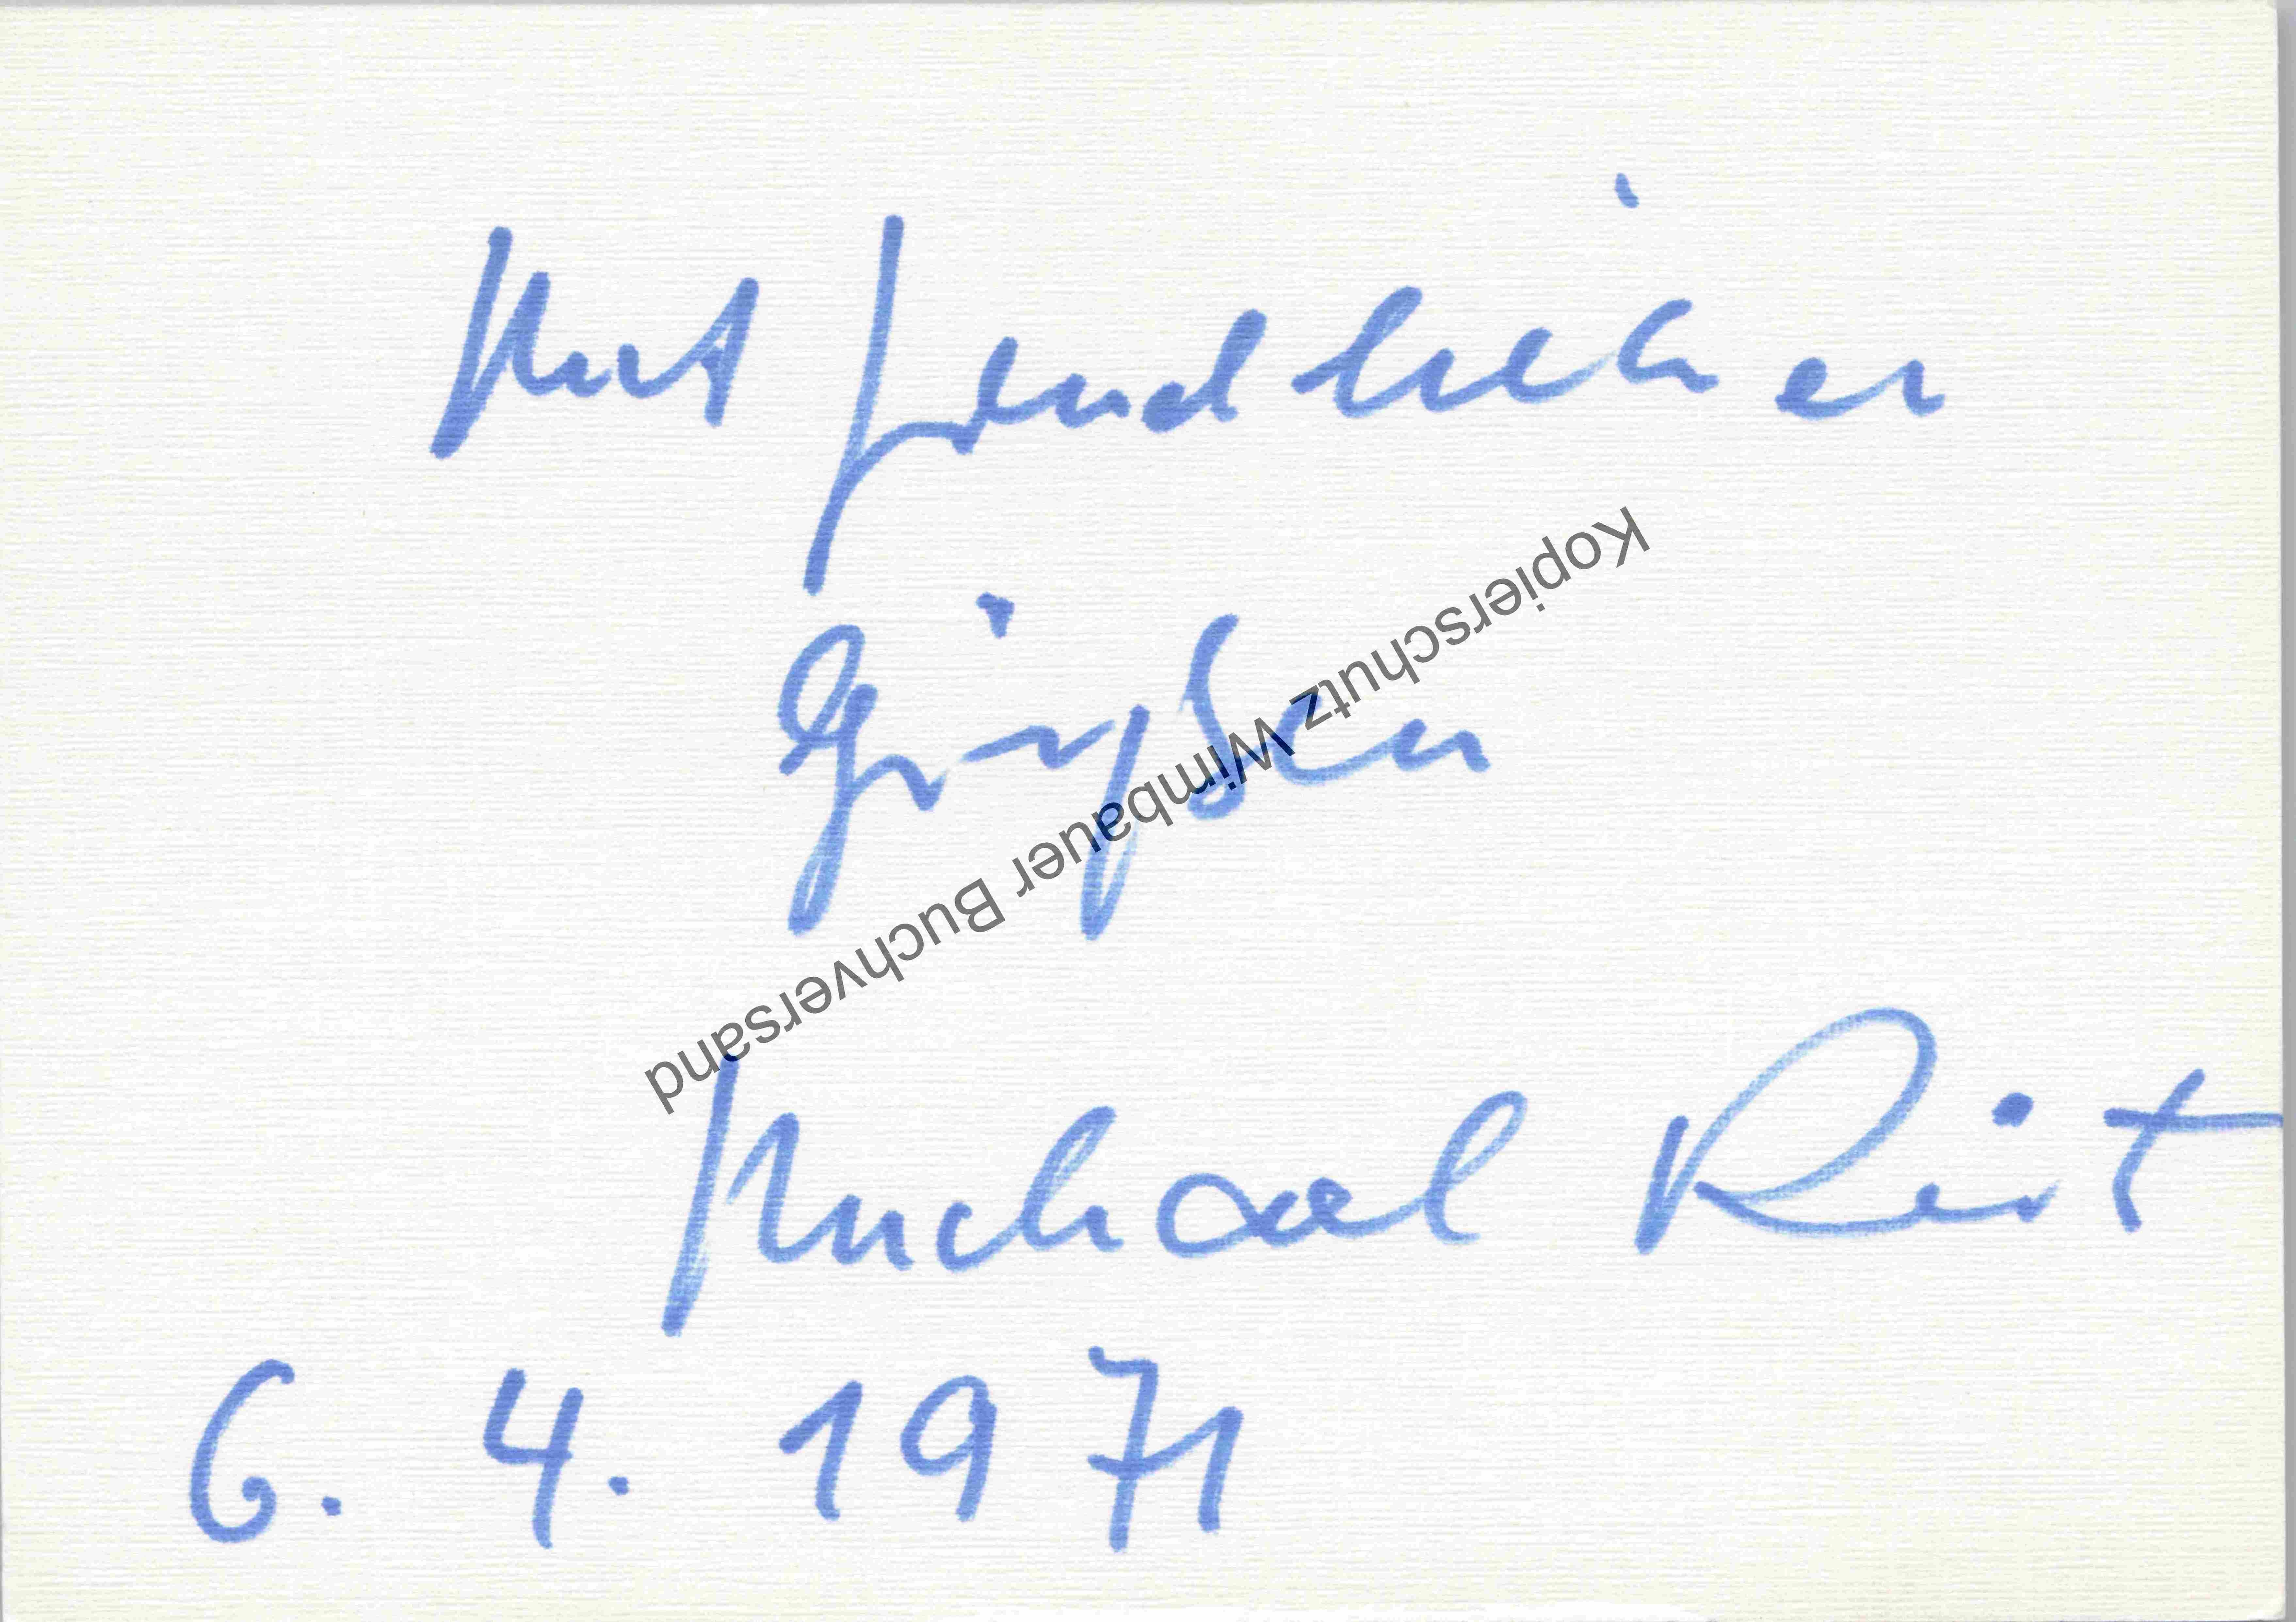 Mit freundlichen
Grüßen
Kopierschutz Wimbauer Buchversand
Michael Reit
6. 4. 1971